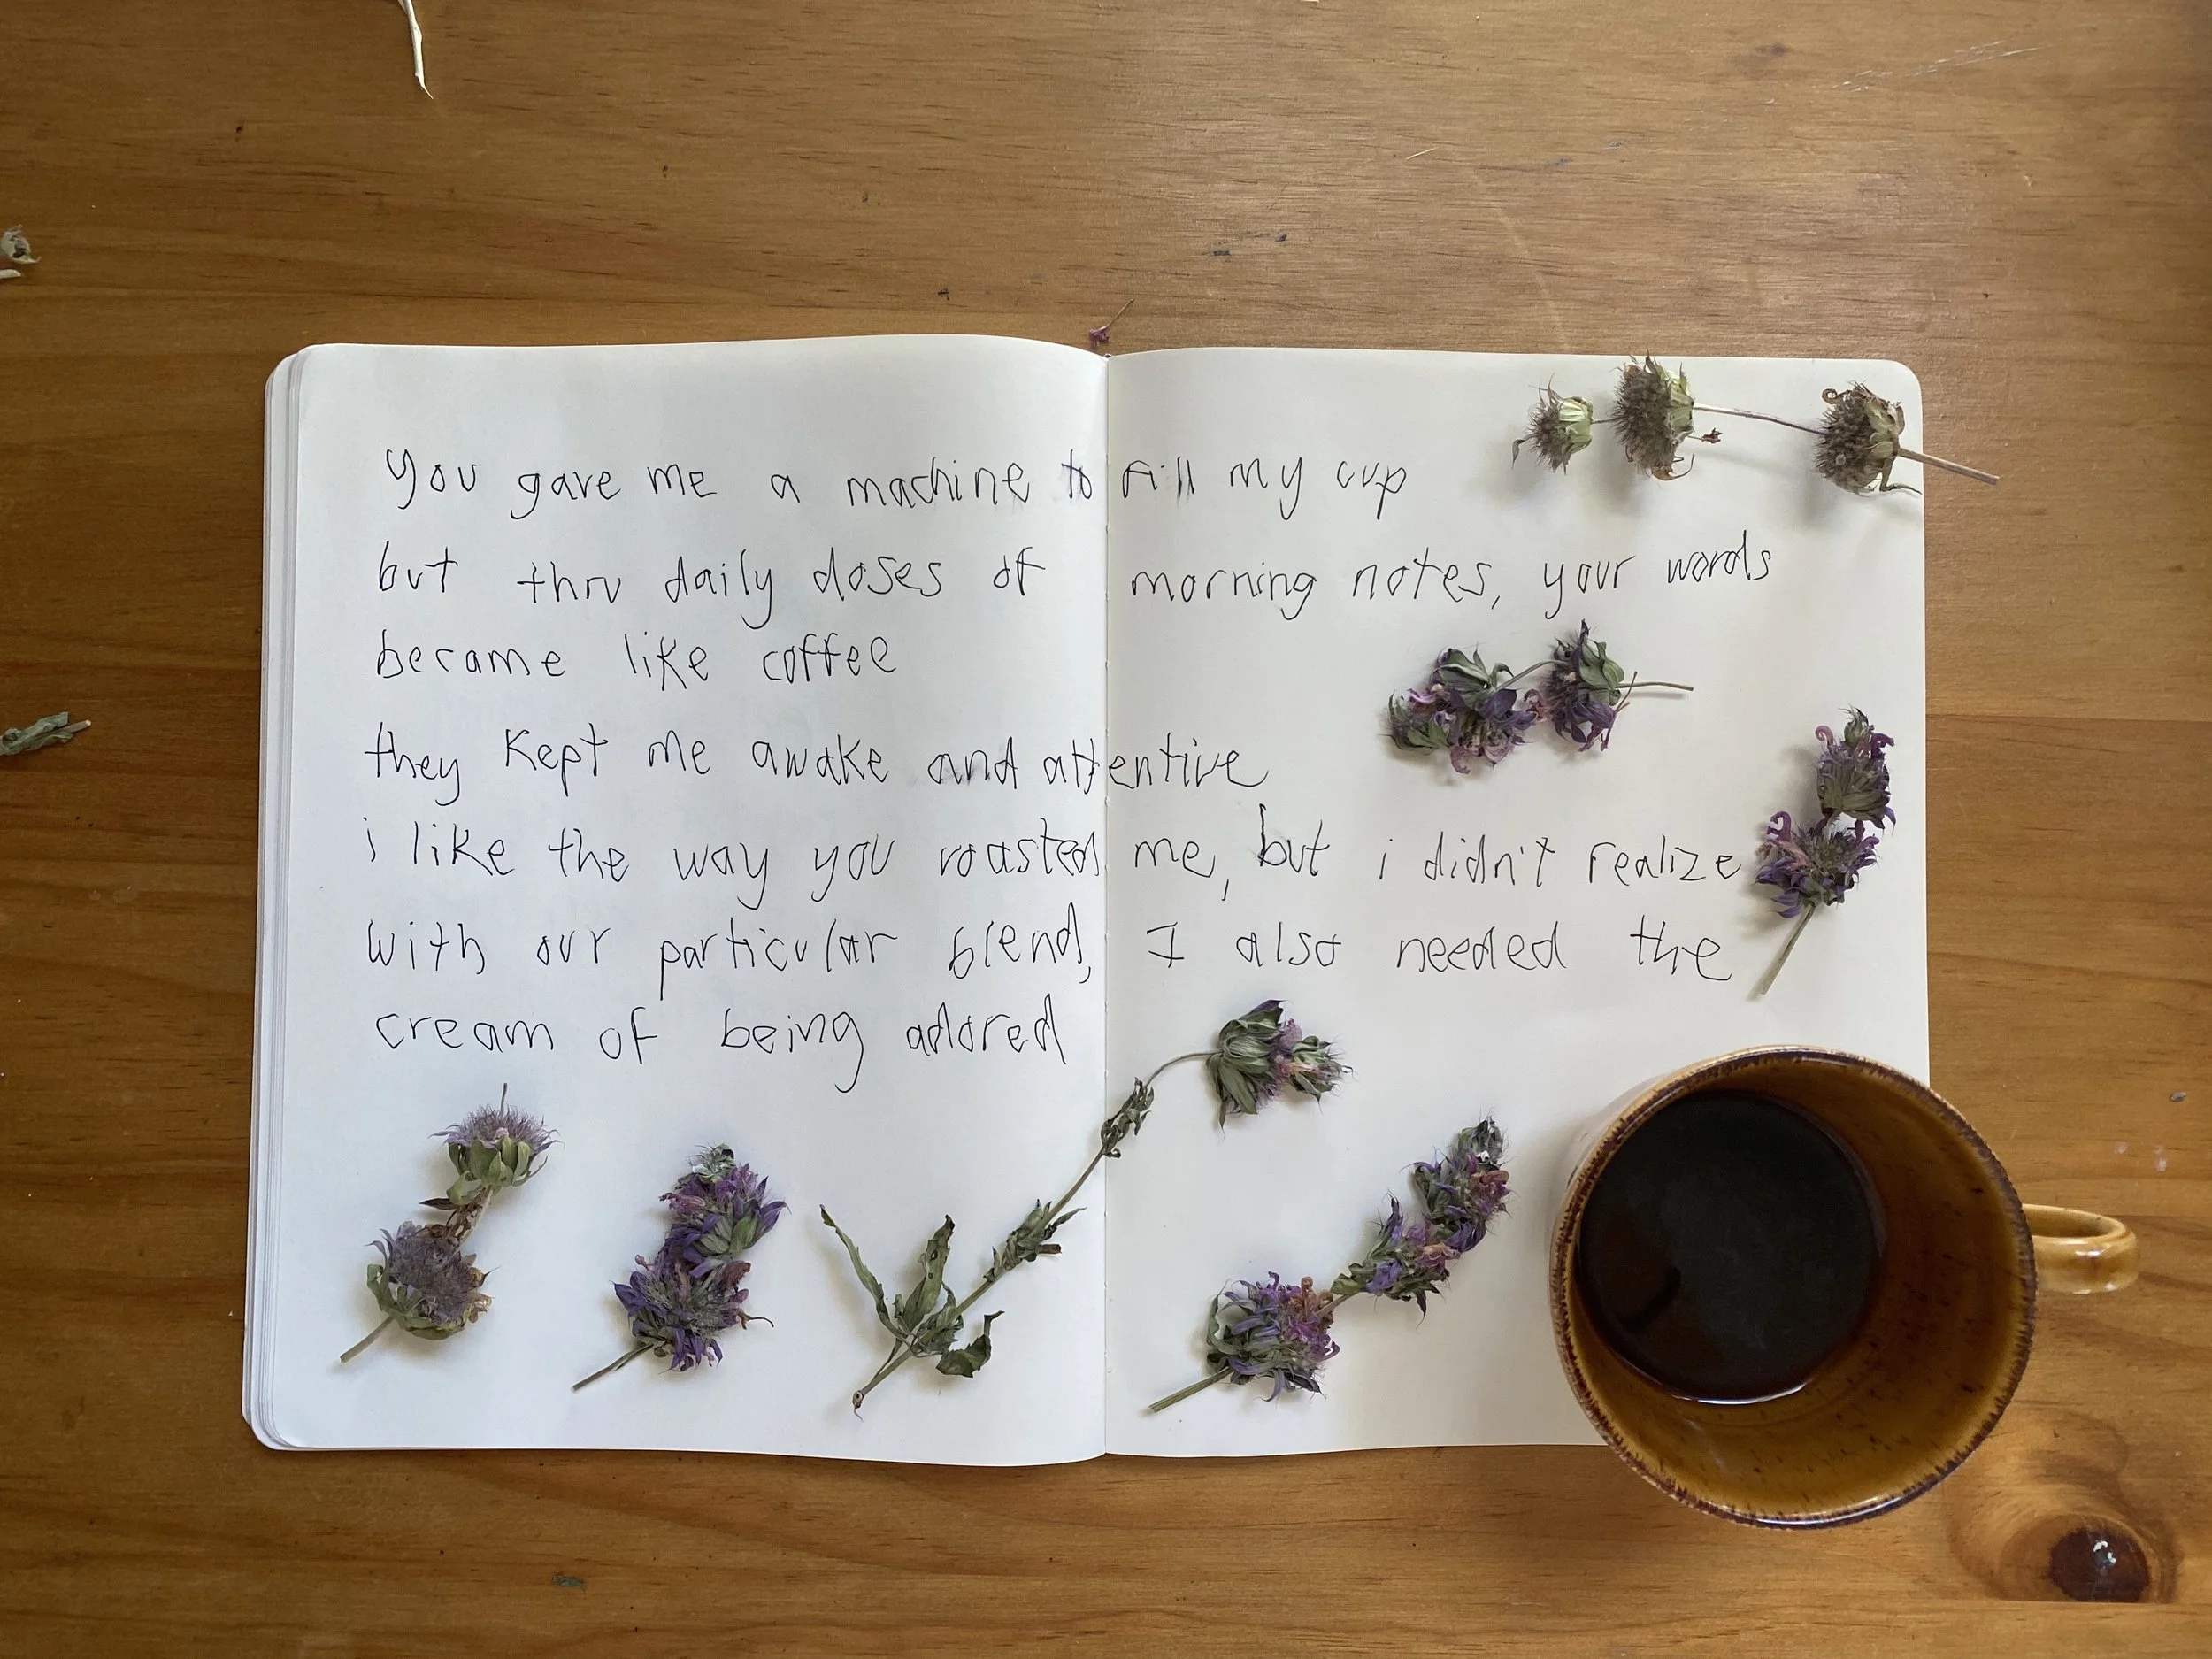 you gave me a machine to fill my cup
but thru daily doses of morning notes, your words
became like coffee
they kept me awake and attentive
i like the way you roasted me, but i didn't realize
with our particular blend, I also needed the
cream of being adored